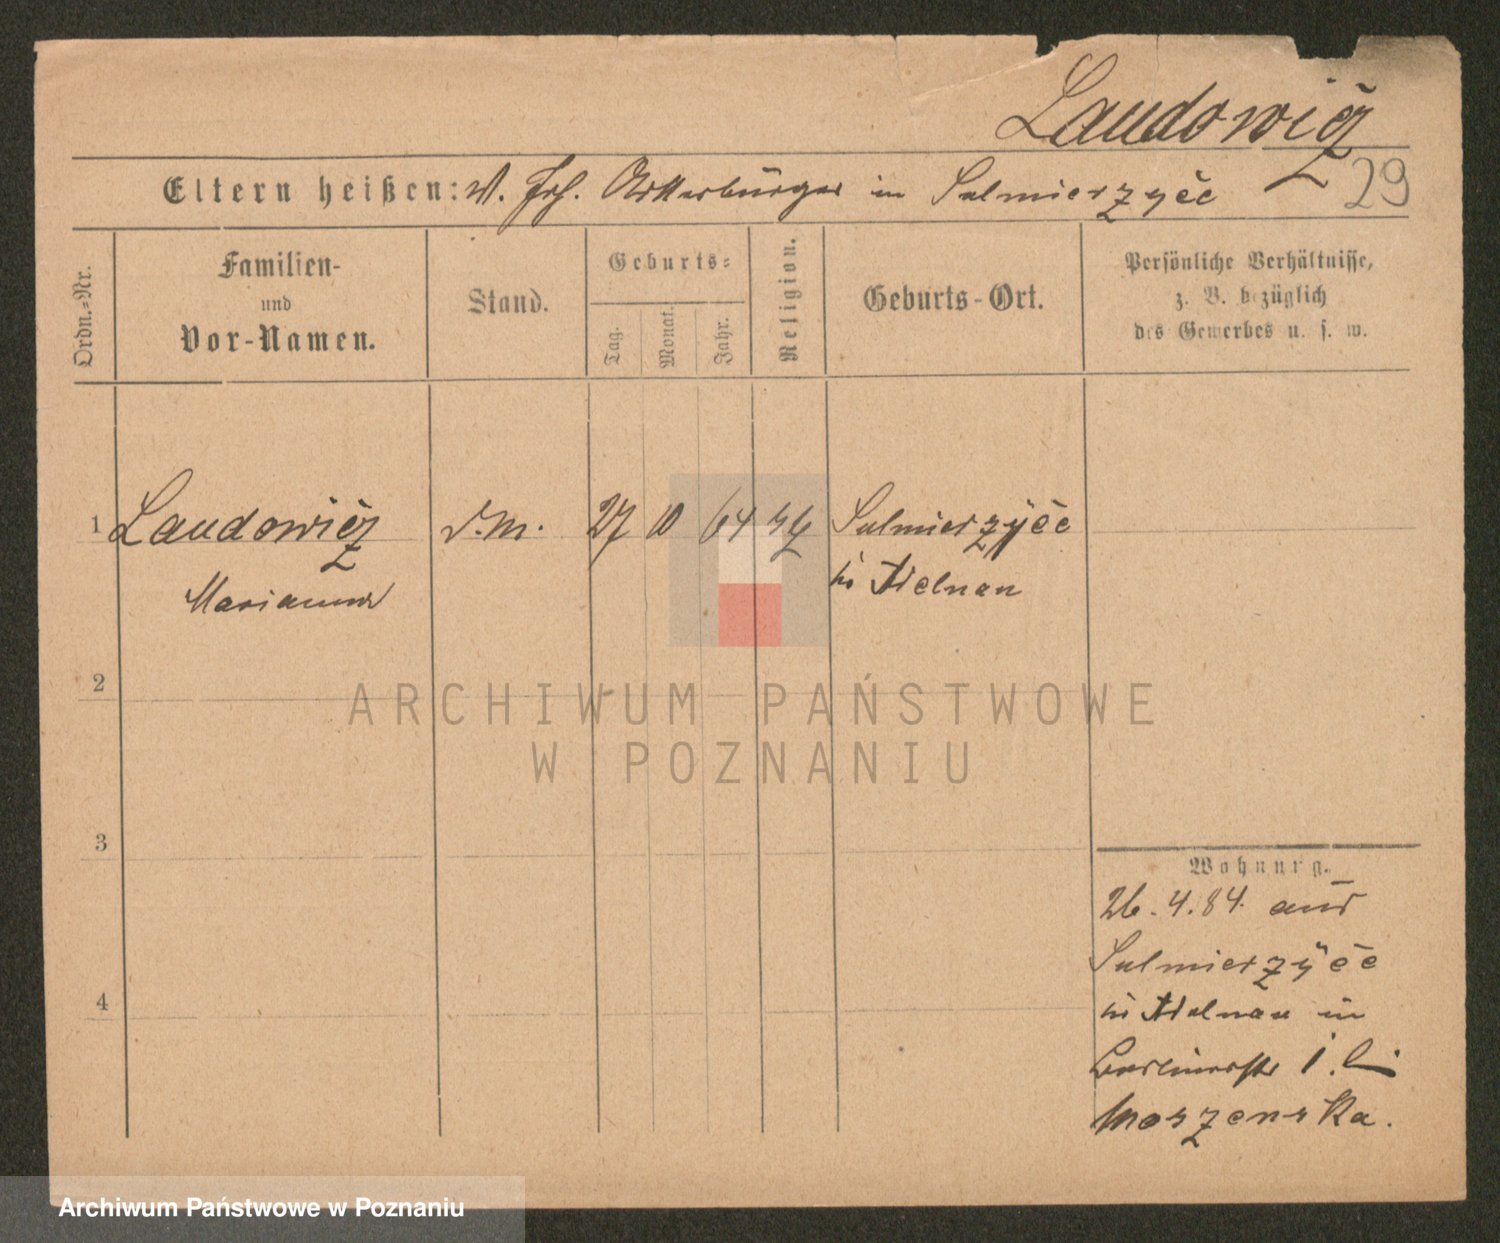 Laudowicz
29
Eltern heißen: V. Jos. Ackerbürger in Sulmierzyce
Ordn.-Nr.
Familien-
und
Vor-Namen.
Stand.
Geburts-
Tag.
Monat.
Jahr.
Religion.
Geburts-Ort.
Persönliche Verhältnisse,
z. B. bezüglich
des Gewerbes u. s. w.
1 Laudowicz d. M. 27 10 64 Sulmierzyce
Marianna Adelnau
2
3
4
Wohnung.
26.4.84. aus
Sulmierzyce
Adelnau in
Berlinerstr 1. bei
Moszenska.
ARCHIWUM PAŃSTWOWE
W POZNANIU
Archiwum Państwowe w Poznaniu